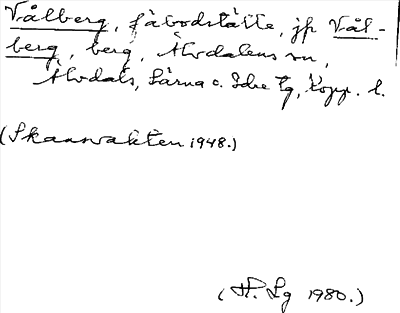 Vålberg, fäbodställe, jfr Vål-
berg, berg, Älvdalens sn,
Älvdals, Särna o. Idre tg, Kopp. l.
(Skansvakten 1948.)
(H. Lg 1980.)